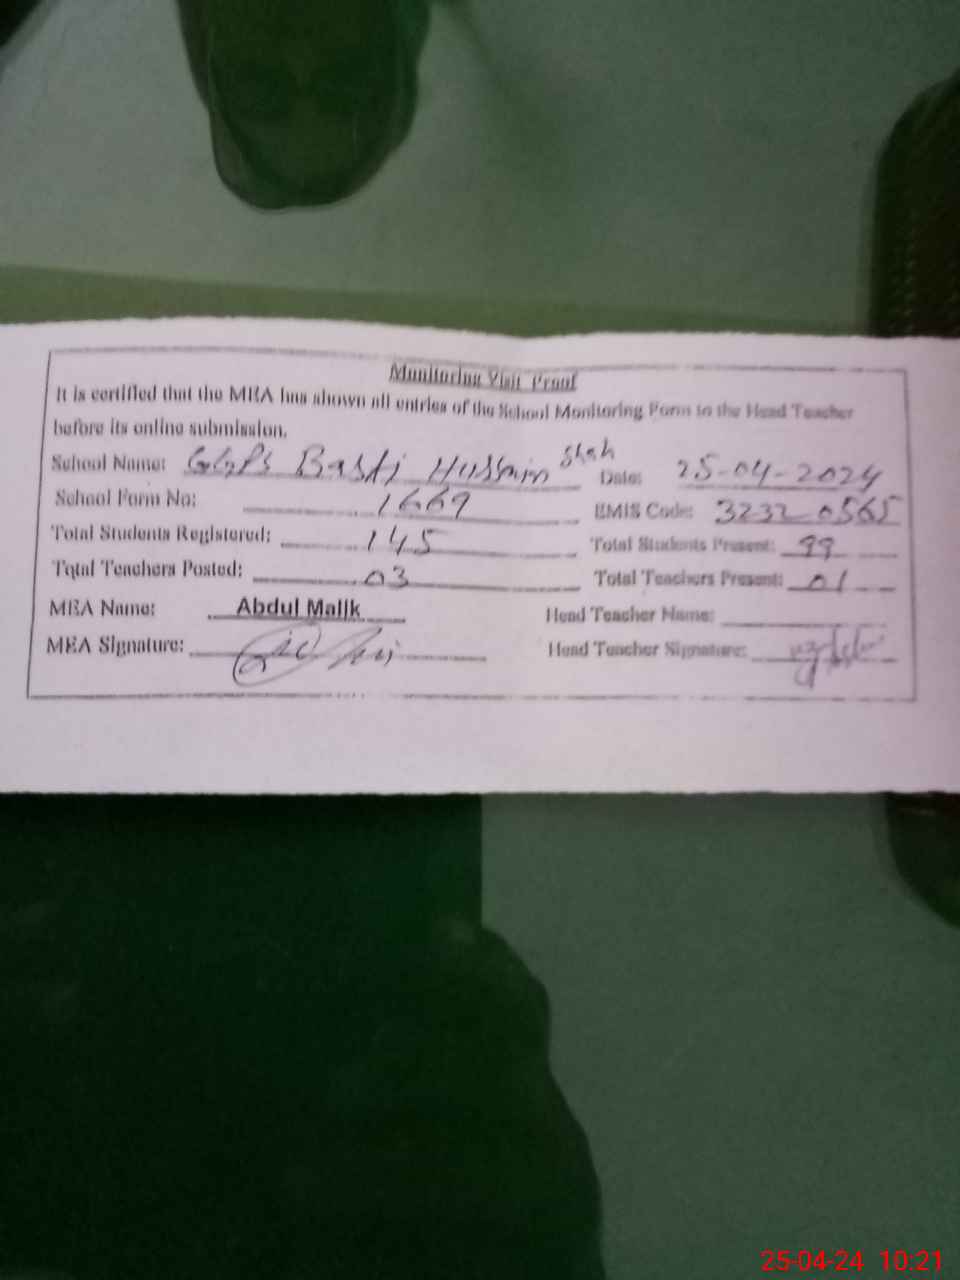 Monitoring Visit Proof
It is certified that the MEA has shown all entries of the School Monitoring Form to the Head Teacher
before its online submission.
School Name: GGPS Basti Hussain Shah Date: 25-04-2024
School Form No: 1669 EMIS Code: 32320565
Total Students Registered: 145 Total Students Present: 99
Total Teachers Posted: 03 Total Teachers Present: 01
MEA Name: Abdul Malik Head Teacher Name:
MEA Signature: Head Teacher Signature:
25-04-24 10:21